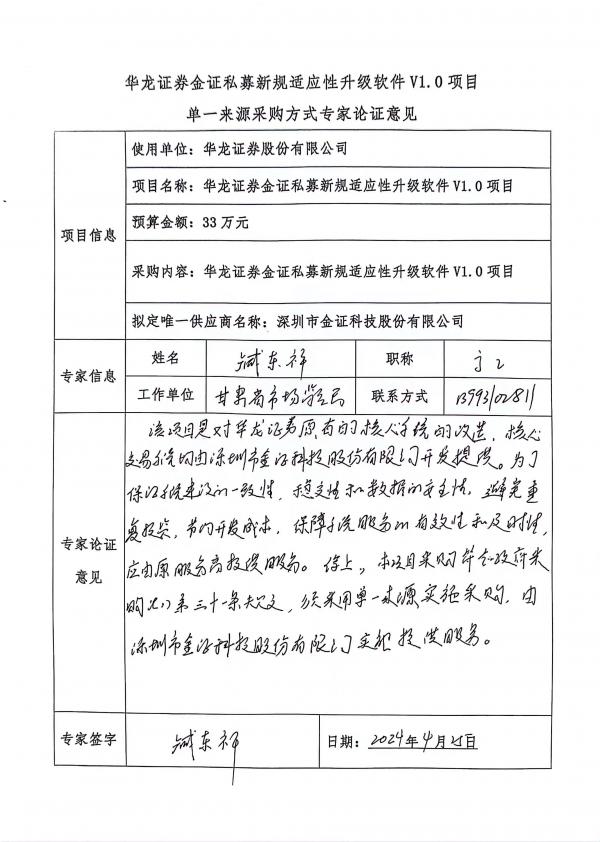 华龙证券金证私募新规适应性升级软件V1.0项目
单一来源采购方式专家论证意见
项目信息
使用单位：华龙证券股份有限公司
项目名称：华龙证券金证私募新规适应性升级软件V1.0项目
预算金额：33万元
采购内容：华龙证券金证私募新规适应性升级软件V1.0项目
拟定唯一供应商名称：深圳市金证科技股份有限公司
专家信息
姓名 臧东祥 职称 高工
工作单位 甘肃省市场监管局 联系方式
专家论证
意见
该项目是对华龙证券原有的核心系统的改造，核心
交易系统由深圳市金证科技股份有限公司开发提供。为了
保证系统建设的一致性，稳定性和数据的安全性，避免重
复投资，节约开发成本，保障系统服务的有效性和及时性，
应由原服务商提供服务。综上，本项目采购符合政府采
购法第三十一条，须采用单一来源实施采购，由
深圳市金证科技股份有限公司实施提供服务。
专家签字 臧东祥 日期：2024年4月 日